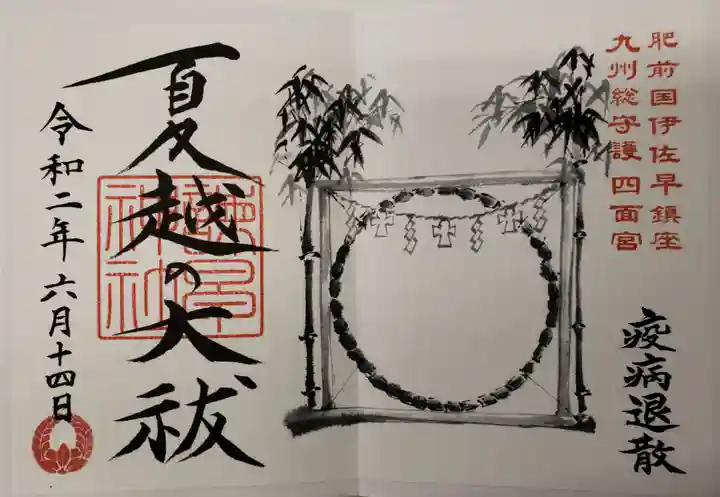 肥前国伊佐早鎮座
九州総守護 四面宮
疫病退散
夏越の大祓
諫早神社
令和二年 六月十四日